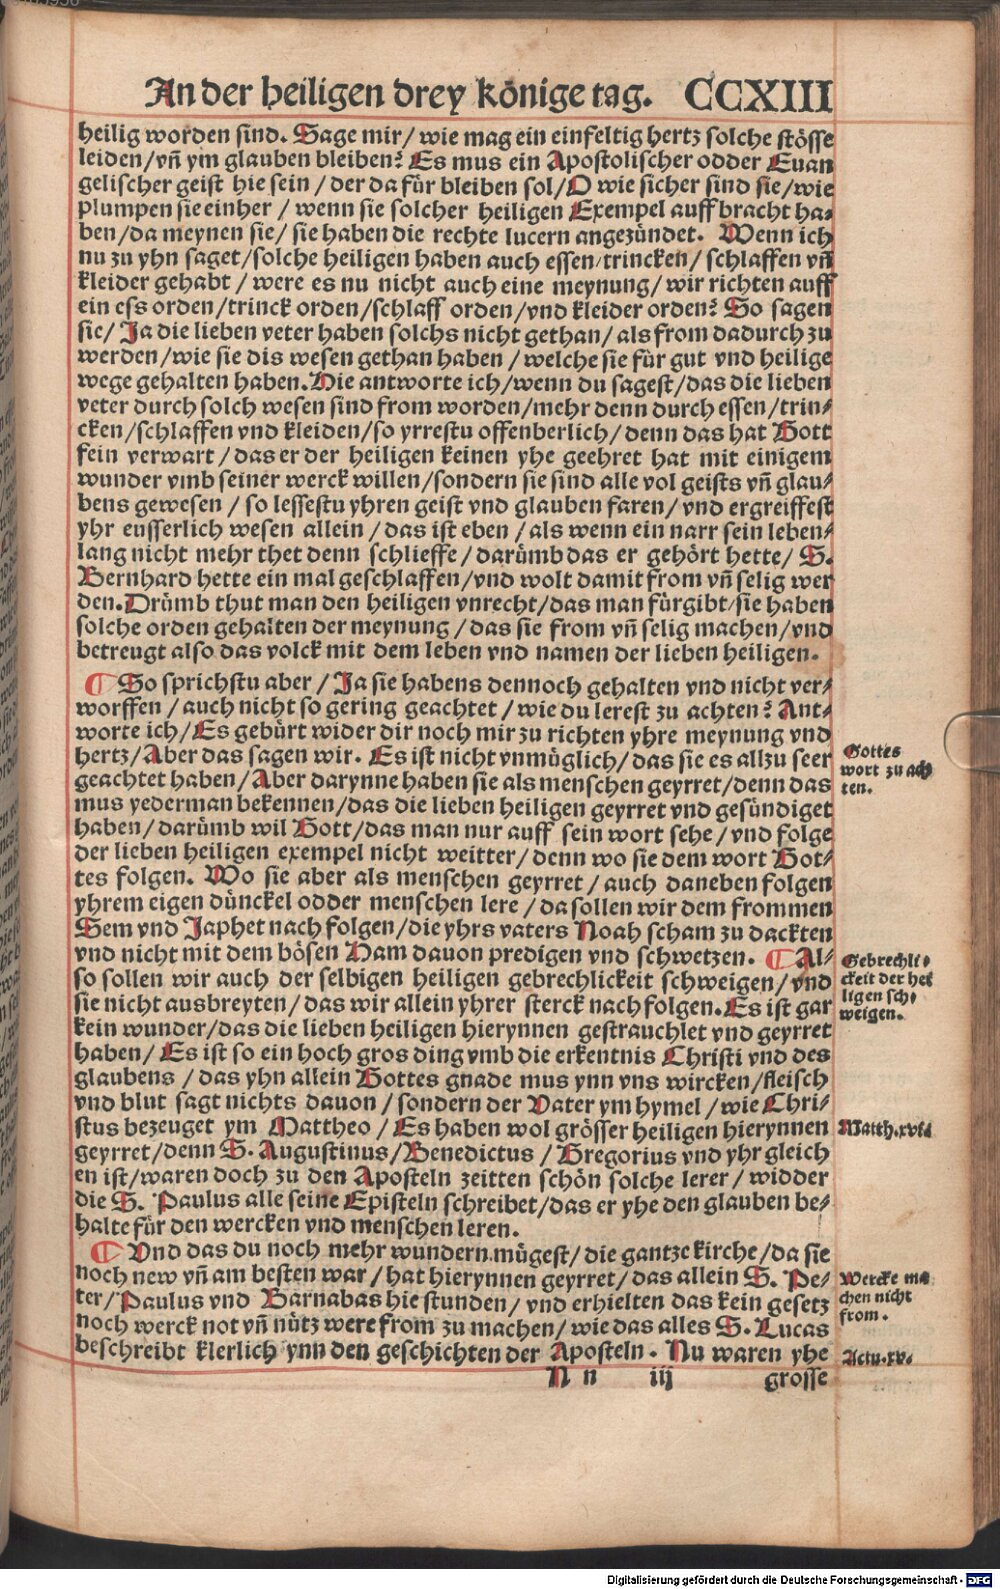 An der heiligen drey könige tag. CCXIII
heilig worden sind. Sage mir/ wie mag ein einfeltig hertz solche stösse
leiden/vn̄ ym glauben bleiben? Es mus ein Apostolischer odder Euan
gelischer geist hie sein/der da für bleiben sol/O wie sicher sind sie/wie
plumpen sie einher/ wenn sie solcher heiligen Exempel auff bracht ha-
ben/da meynen sie/ sie haben die rechte lucern angezündet. Wenn ich
nu zu yhn saget/solche heiligen haben auch essen/trincken/ schlaffen vn̄
kleider gehabt/ were es nu nicht auch eine meynung/ wir richten auff
ein ess orden/trinck orden/schlaff orden/vnd kleider orden? So sagen
sie/ Ja die lieben veter haben solchs nicht gethan/ als from dadurch zu
werden/wie sie dis wesen gethan haben/ welche sie für gut vnd heilige
wege gehalten haben. Hie antworte ich/wenn du sagest/das die lieben
veter durch solch wesen sind from worden/mehr denn durch essen/trin-
cken/schlaffen vnd kleiden/so yrrestu offenberlich/denn das hat Gott
fein verwart/das er der heiligen keinen yhe geehret hat mit einigem
wunder vmb seiner werck willen/sondern sie sind alle vol geists vn̄ glau-
bens gewesen/ so lessestu yhren geist vnd glauben faren/ vnd ergreiffest
yhr eusserlich wesen allein/das ist eben/als wenn ein narr sein leben-
lang nicht mehr thet denn schlieffe/darümb das er gehört hette/ S.
Bernhard hette ein mal geschlaffen/vnd wolt damit from vn̄ selig wer
den. Drümb thut man den heiligen vnrecht/das man fürgibt/sie haben
solche orden gehalten der meynung/das sie from vn̄ selig machen/vnd
betreugt also das volck mit dem leben vnd namen der lieben heiligen.
¶ So sprichstu aber/ Ja sie habens dennoch gehalten vnd nicht ver-
worffen/auch nicht so gering geachtet/wie du lerest zu achten? Ant-
worte ich/Es gebürt wider dir noch mir zu richten yhre meynung vnd
hertz/Aber das sagen wir. Es ist nicht vnmüglich/das sie es allzu seer
geachtet haben/Aber darynne haben sie als menschen geyrret/denn das
mus yederman bekennen/das die lieben heiligen geyrret vnd gesündiget
haben/darümb wil Gott/das man nur auff sein wort sehe/vnd folge
der lieben heiligen exempel nicht weitter/denn wo sie dem wort Got-
tes folgen. Wo sie aber als menschen geyrret/auch daneben folgen
yhrem eigen dünckel odder menschen lere/da sollen wir dem frommen
Sem vnd Japhet nach folgen/die yhrs vaters Noah scham zu dackten
vnd nicht mit dem bösen Ham dauon predigen vnd schwetzen. ¶ Al-
so sollen wir auch der selbigen heiligen gebrechlickeit schweigen/vnd
sie nicht ausbreyten/das wir allein yhrer sterck nach folgen. Es ist gar
kein wunder/das die lieben heiligen hierynnen gestrauchlet vnd geyrret
haben/ Es ist so ein hoch gros ding vmb die erkentnis Christi vnd des
glaubens/das yhn allein Gottes gnade mus ynn vns wircken/fleisch
vnd blut sagt nichts dauon/sondern der Vater ym hymel/wie Chri-
stus bezeuget ym Mattheo/Es haben wol grösser heiligen hierynnen
geyrret/denn S. Augustinus/Benedictus/Gregorius vnd yhr gleich
en ist/waren doch zu den Aposteln zeitten schön solche lerer/widder
die S. Paulus alle seine Episteln schreibet/das er yhe den glauben be-
halte für den wercken vnd menschen leren.
¶ Vnd das du noch mehr wundern mügest/die gantze kirche/da sie
noch new vn̄ am besten war/hat hierynnen geyrret/das allein S. Pe-
ter/Paulus vnd Barnabas hie stunden/vnd erhielten das kein gesetz
noch werck not vn̄ nütz were from zu machen/wie das alles S. Lucas
beschreibt klerlich ynn den geschichten der Aposteln. Nu waren yhe
N n iij grosse
Gottes
wort zu ach
ten.
Gebrechli-
ckeit der hei
ligen sch-
weigen.
Matth.xvi.
Wercke ma
chen nicht
from.
Actu.xv.
Digitalisierung gefördert durch die Deutsche Forschungsgemeinschaft - DFG